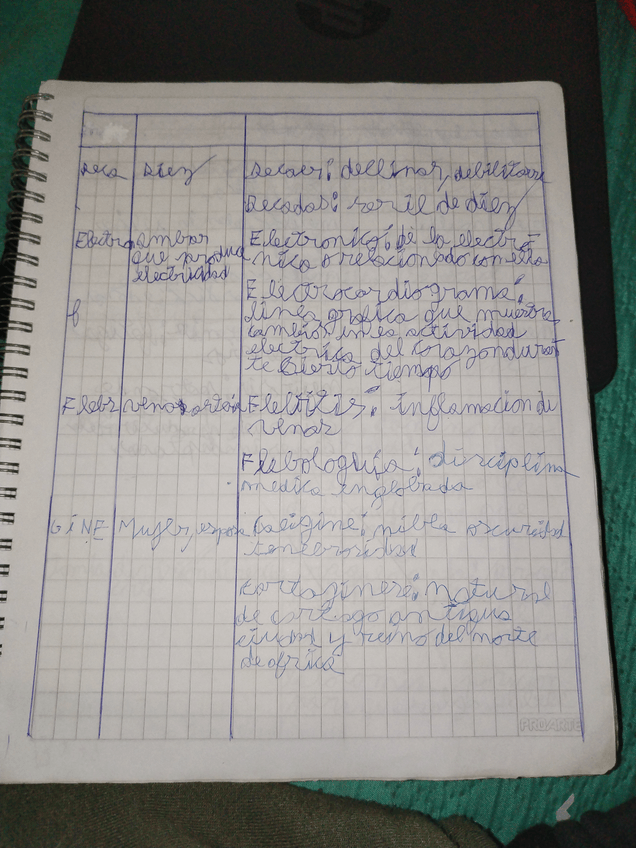 Deca Diez Decaer: declinar, debilitarse
Decadas: serie de diez
Electro ambar Electronico: de la electró
que produce nica o relacionado con ella
electricidad
Electrocardiograma:
linea grafica que muestra
f cambios en la actividad
electrica del corazon duran
te cierto tiempo
Flebi vena, arteria Flebitis: inflamacion de
venas
Flebologia: disciplina
medica englobada
GINE Mujer, esposa Caligine: niebla oscuridad
tenebrosidad
cartaginese: natural
de cartago antigua
ciudad y reino del norte
de africa
PROARTE